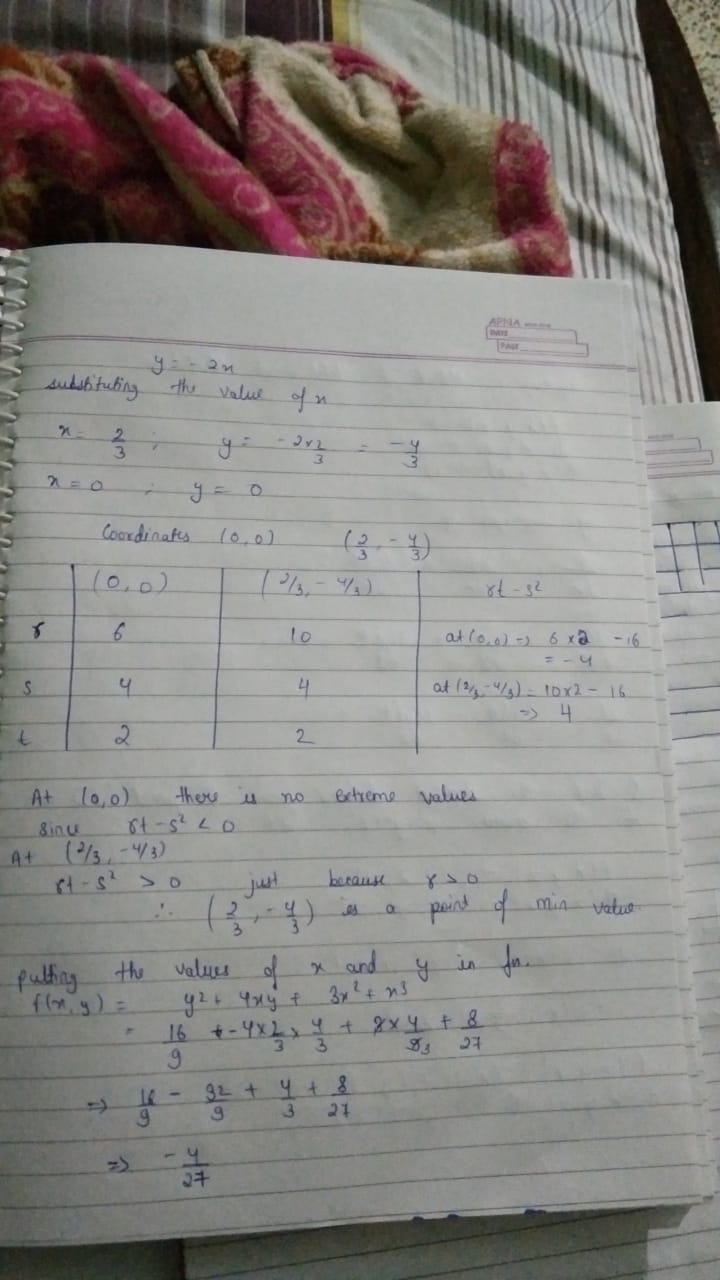 APNA
DATE
PAGE
y = - 2x
substituting the value of x
x = 2/3 ; y = - 2×2/3 = -4/3
x = 0 ; y = 0
Coordinates (0,0) (2/3, -4/3)
(0,0) (2/3, -4/3) rt - s²
r 6 10 at (0,0) => 6 × 2 - 16
= - 4
s 4 4 at (2/3, -4/3) = 10×2 - 16
=> 4
t 2 2
At (0,0) there is no extreme values
since rt - s² < 0
At (2/3, -4/3)
rt - s² > 0 just because r > 0
∴ (2/3, -4/3) is a point of min value
putting the values of x and y in fn.
f(x,y) = y² + 4xy + 3x² + x³
= 16/9 + -4×2/3 × 4/3 + 3×4/93 + 8/27
=> 16/9 - 32/9 + 4/3 + 8/27
=> -4/27